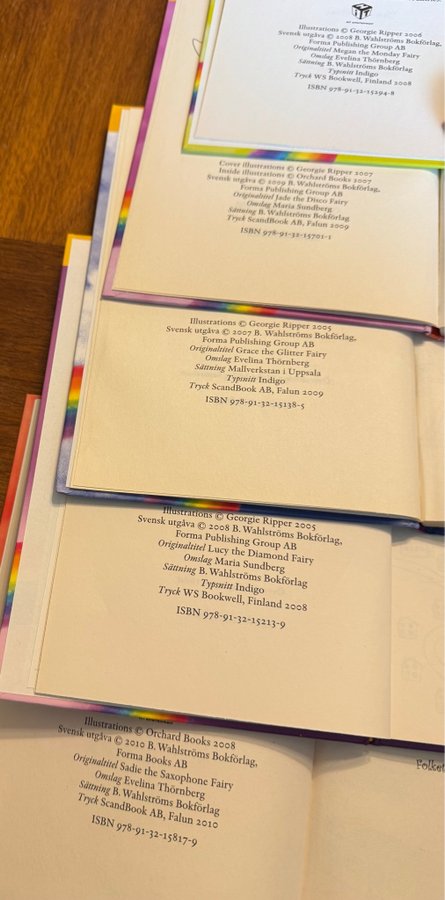 Illustrations © Georgie Ripper 2006
Svensk utgåva © 2008 B. Wahlströms Bokförlag,
Forma Publishing Group AB
Originaltitel Megan the Monday Fairy
Omslag Evelina Thörnberg
Sättning B. Wahlströms Bokförlag
Typsnitt Indigo
Tryck WS Bookwell, Finland 2008
ISBN 978-91-32-15294-8
Cover illustrations © Georgie Ripper 2007
Inside illustrations © Orchard Books 2007
Svensk utgåva © 2009 B. Wahlströms Bokförlag,
Forma Publishing Group AB
Originaltitel Jade the Disco Fairy
Omslag Maria Sundberg
Sättning B. Wahlströms Bokförlag
Tryck ScandBook AB, Falun 2009
ISBN 978-91-32-15701-1
Illustrations © Georgie Ripper 2005
Svensk utgåva © 2007 B. Wahlströms Bokförlag,
Forma Publishing Group AB
Originaltitel Grace the Glitter Fairy
Omslag Evelina Thörnberg
Sättning Mallverkstan i Uppsala
Typsnitt Indigo
Tryck ScandBook AB, Falun 2009
ISBN 978-91-32-15138-5
Illustrations © Georgie Ripper 2005
Svensk utgåva © 2008 B. Wahlströms Bokförlag,
Forma Publishing Group AB
Originaltitel Lucy the Diamond Fairy
Omslag Maria Sundberg
Sättning B. Wahlströms Bokförlag
Typsnitt Indigo
Tryck WS Bookwell, Finland 2008
ISBN 978-91-32-15213-9
Illustrations © Orchard Books 2008
Svensk utgåva © 2010 B. Wahlströms Bokförlag,
Forma Books AB
Originaltitel Sadie the Saxophone Fairy
Omslag Evelina Thörnberg
Sättning B. Wahlströms Bokförlag
Tryck ScandBook AB, Falun 2010
ISBN 978-91-32-15817-9